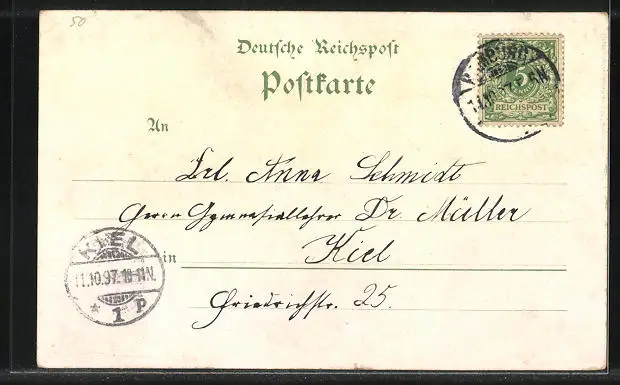 50
Deutsche Reichspost
Postkarte
HAMBURG
11.10.97
5
REICHSPOST
An
Frl. Anna Schmidt
Herrn Gymnasiallehrer Dr. Müller
in Kiel
Friedrichstr. 25.
KIEL
11.10.97. 10-11N.
* 1 P